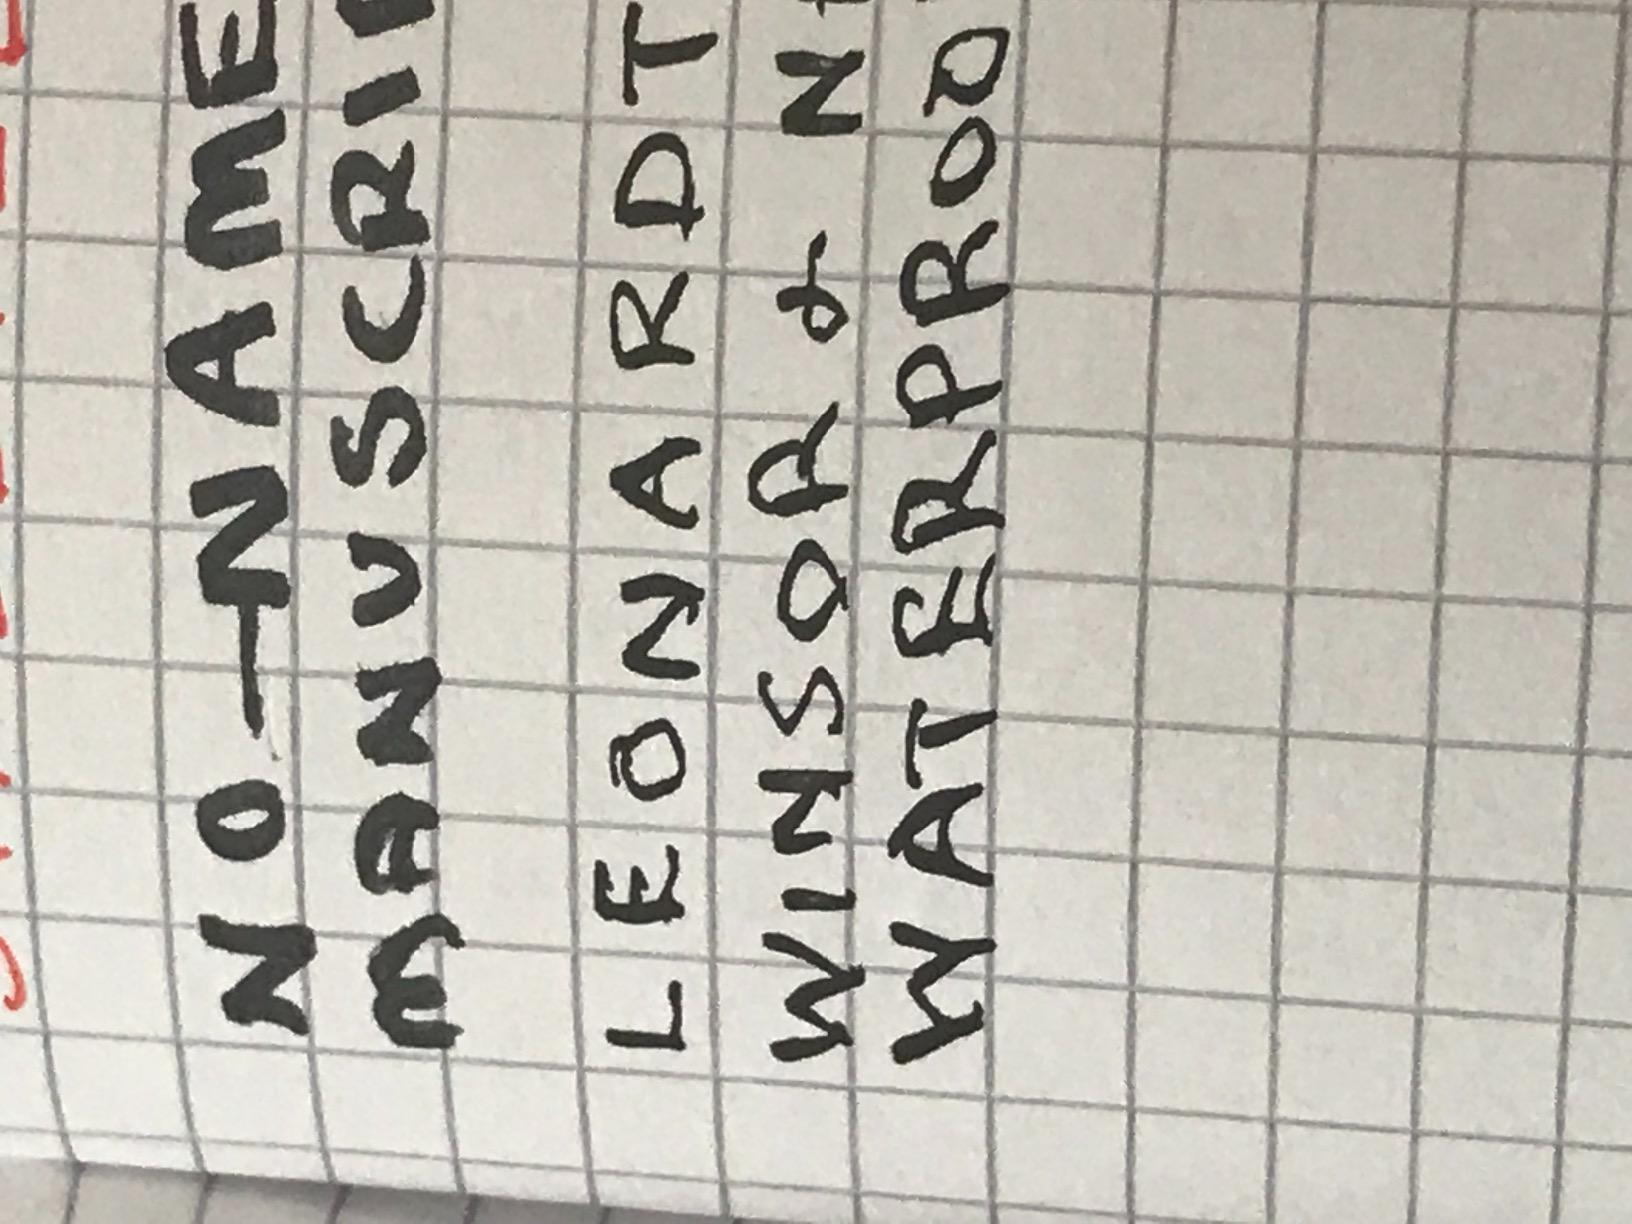 NO-NAME
MANUSCRI
LEONARDT
WINSOR & N
WATERPROO